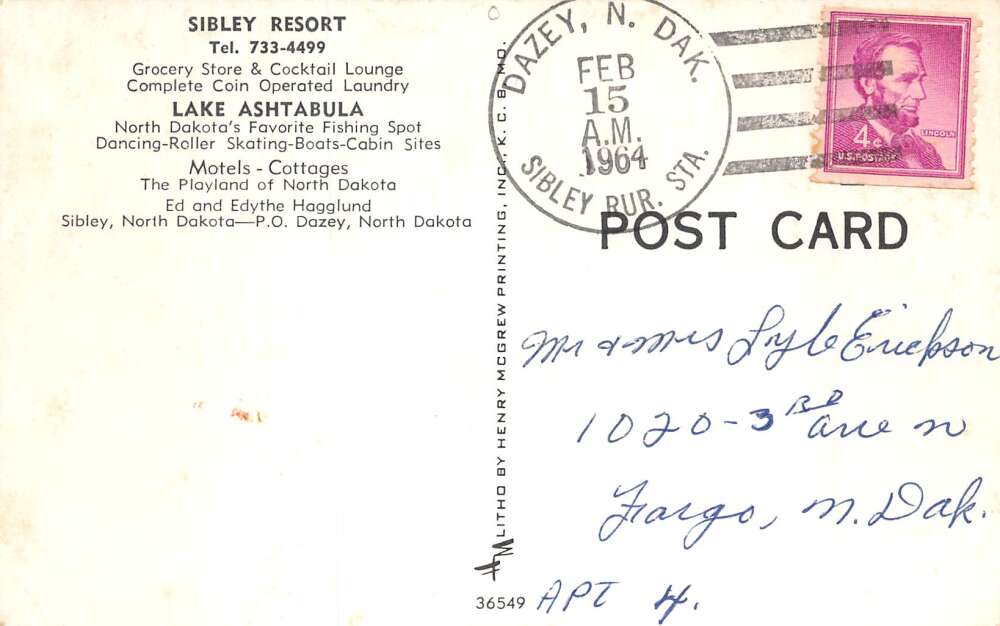 SIBLEY RESORT
Tel. 733-4499
Grocery Store & Cocktail Lounge
Complete Coin Operated Laundry
LAKE ASHTABULA
North Dakota's Favorite Fishing Spot
Dancing-Roller Skating-Boats-Cabin Sites
Motels - Cottages
The Playland of North Dakota
Ed and Edythe Hagglund
Sibley, North Dakota—P.O. Dazey, North Dakota
LITHO BY HENRY MCGREW PRINTING, INC., K. C. 8, MO.
HM
36549
DAZEY, N. DAK.
FEB
15
A.M.
1964
SIBLEY RUR. STA.
LINCOLN
4¢
U.S. POSTAGE
POST CARD
Mr & Mrs Lyle Erickson
1020 - 3RD ave n
Fargo, N. Dak.
APT 4.